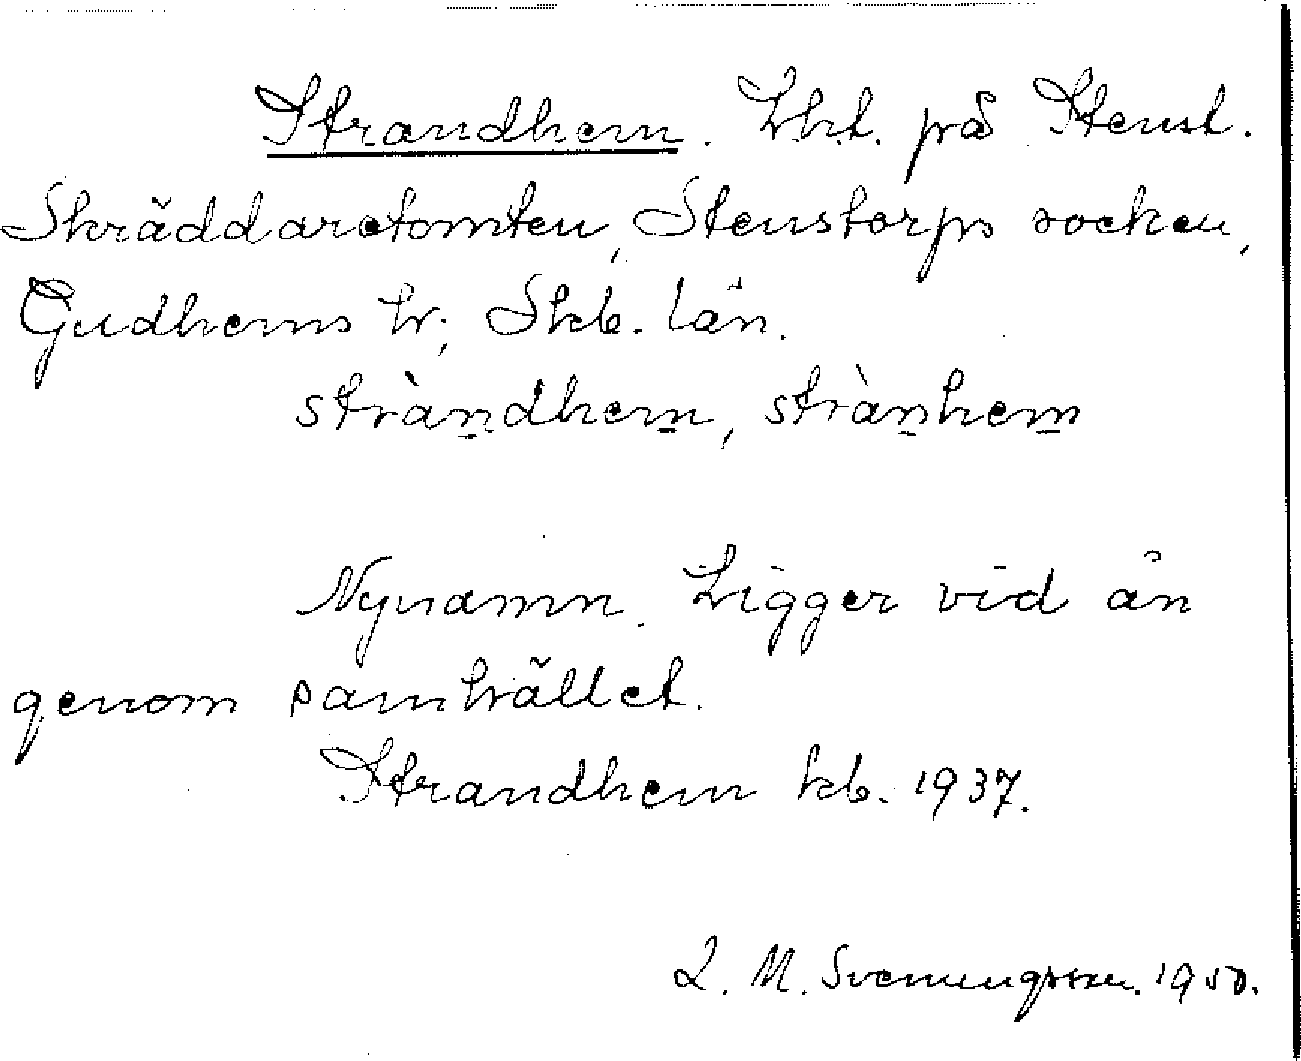 Strandhem. Lht. på Stenst.
Skräddaretomten, Stenstorps socken,
Gudhems hr; Skb. län.
stràn̠dhem̠, stràn̠hem̠
Nynamn. Ligger vid ån
genom samhället.
Strandhem kb. 1937.
L. M. Svenungsson. 1950.